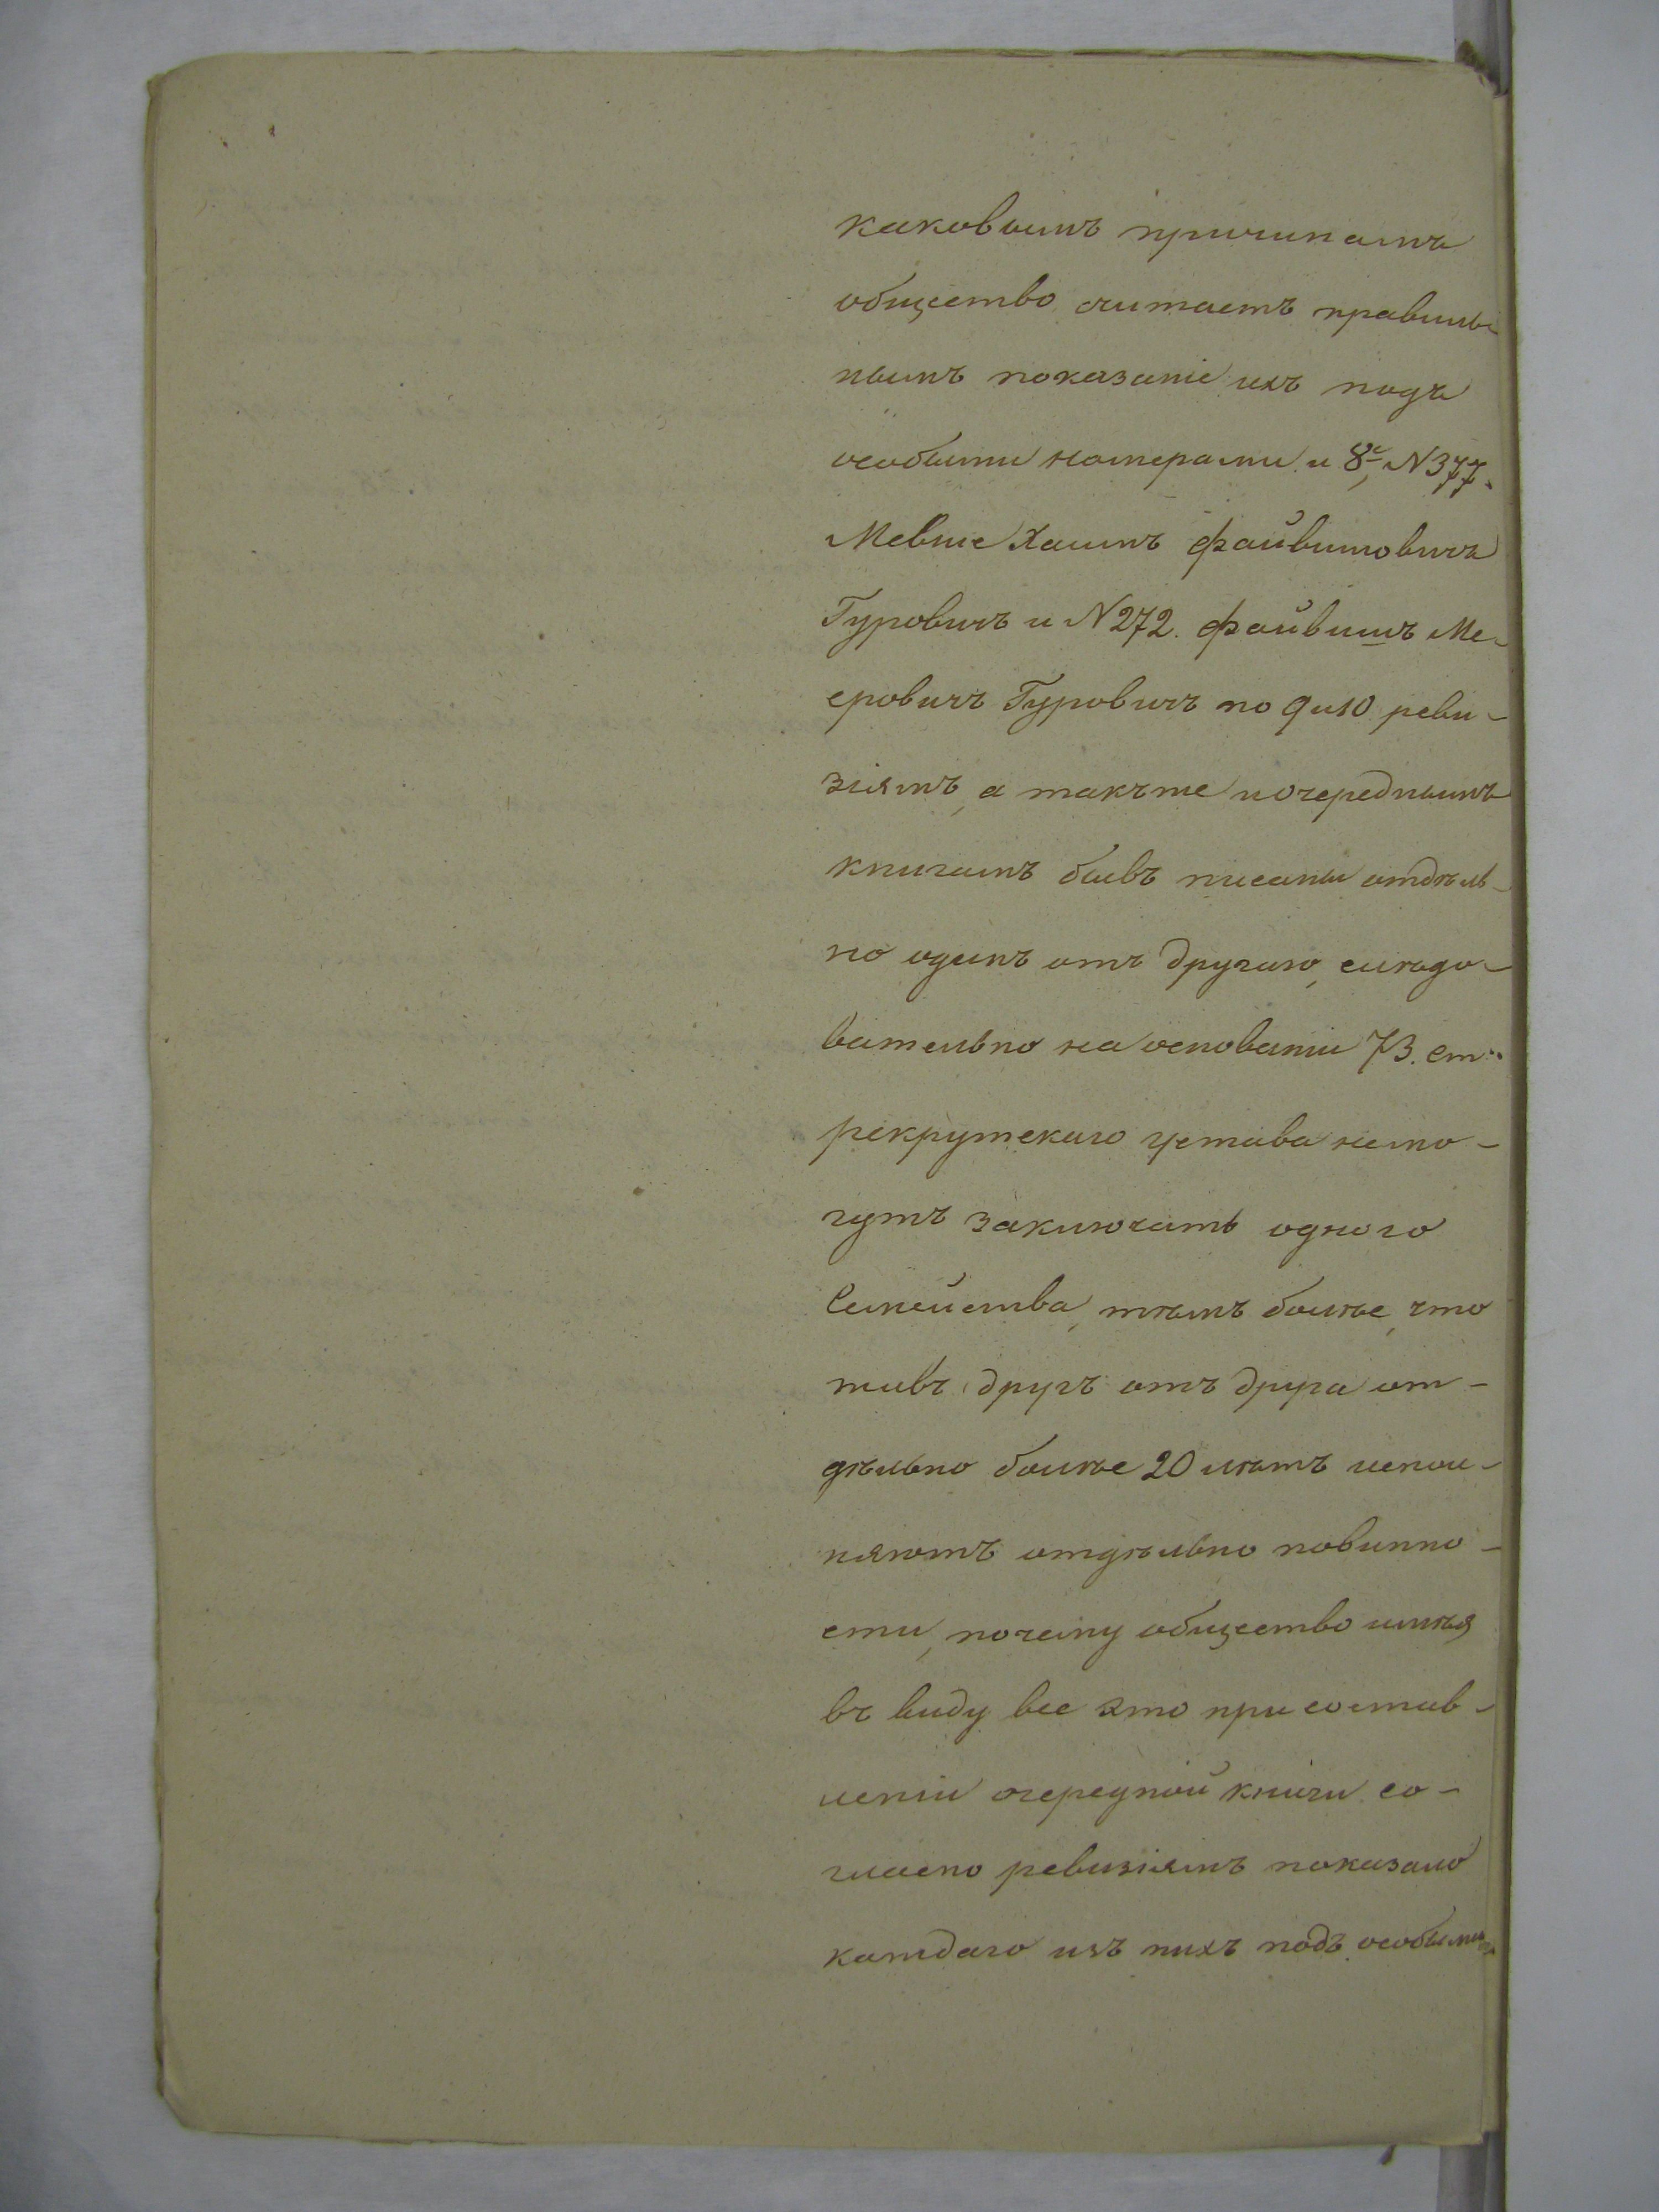 каковымъ причинамъ
общество считаетъ правиль
нымъ показаніе ихъ подъ
особыми номерами и 8е, N 377.
Мевше Хаимъ Файвишовичъ
Гуровичъ и N 272. Файвишъ Ме-
еровичъ Гуровичъ по 9 и 10 реви-
зіямъ, а такъже и очереднымъ
книгамъ бывъ писаны отдѣль-
но одинъ отъ другаго, слѣдо-
вательно на основаніи 73. ст.
рекрутскаго устава немо-
гутъ заключать одного
Семейства, тѣмъ болѣе, что
живъ другъ отъ друга от-
дѣльно болѣе 20 лѣтъ испол-
няютъ отдѣльно повинно-
сти, почему общество имѣя
въ виду все это при состав-
леніи очередной книги со-
гласно ревизіямъ показало
каждаго изъ нихъ подъ особыми